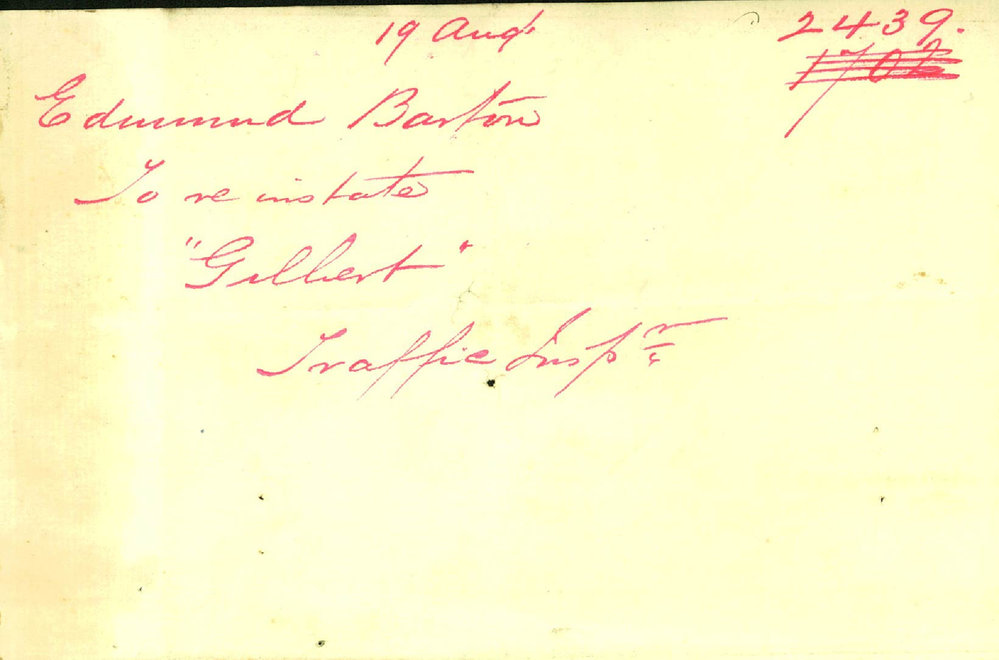 19 Augt 2439.
Edmund Barton
To re instate
"Gilbert"
Traffic Inspr